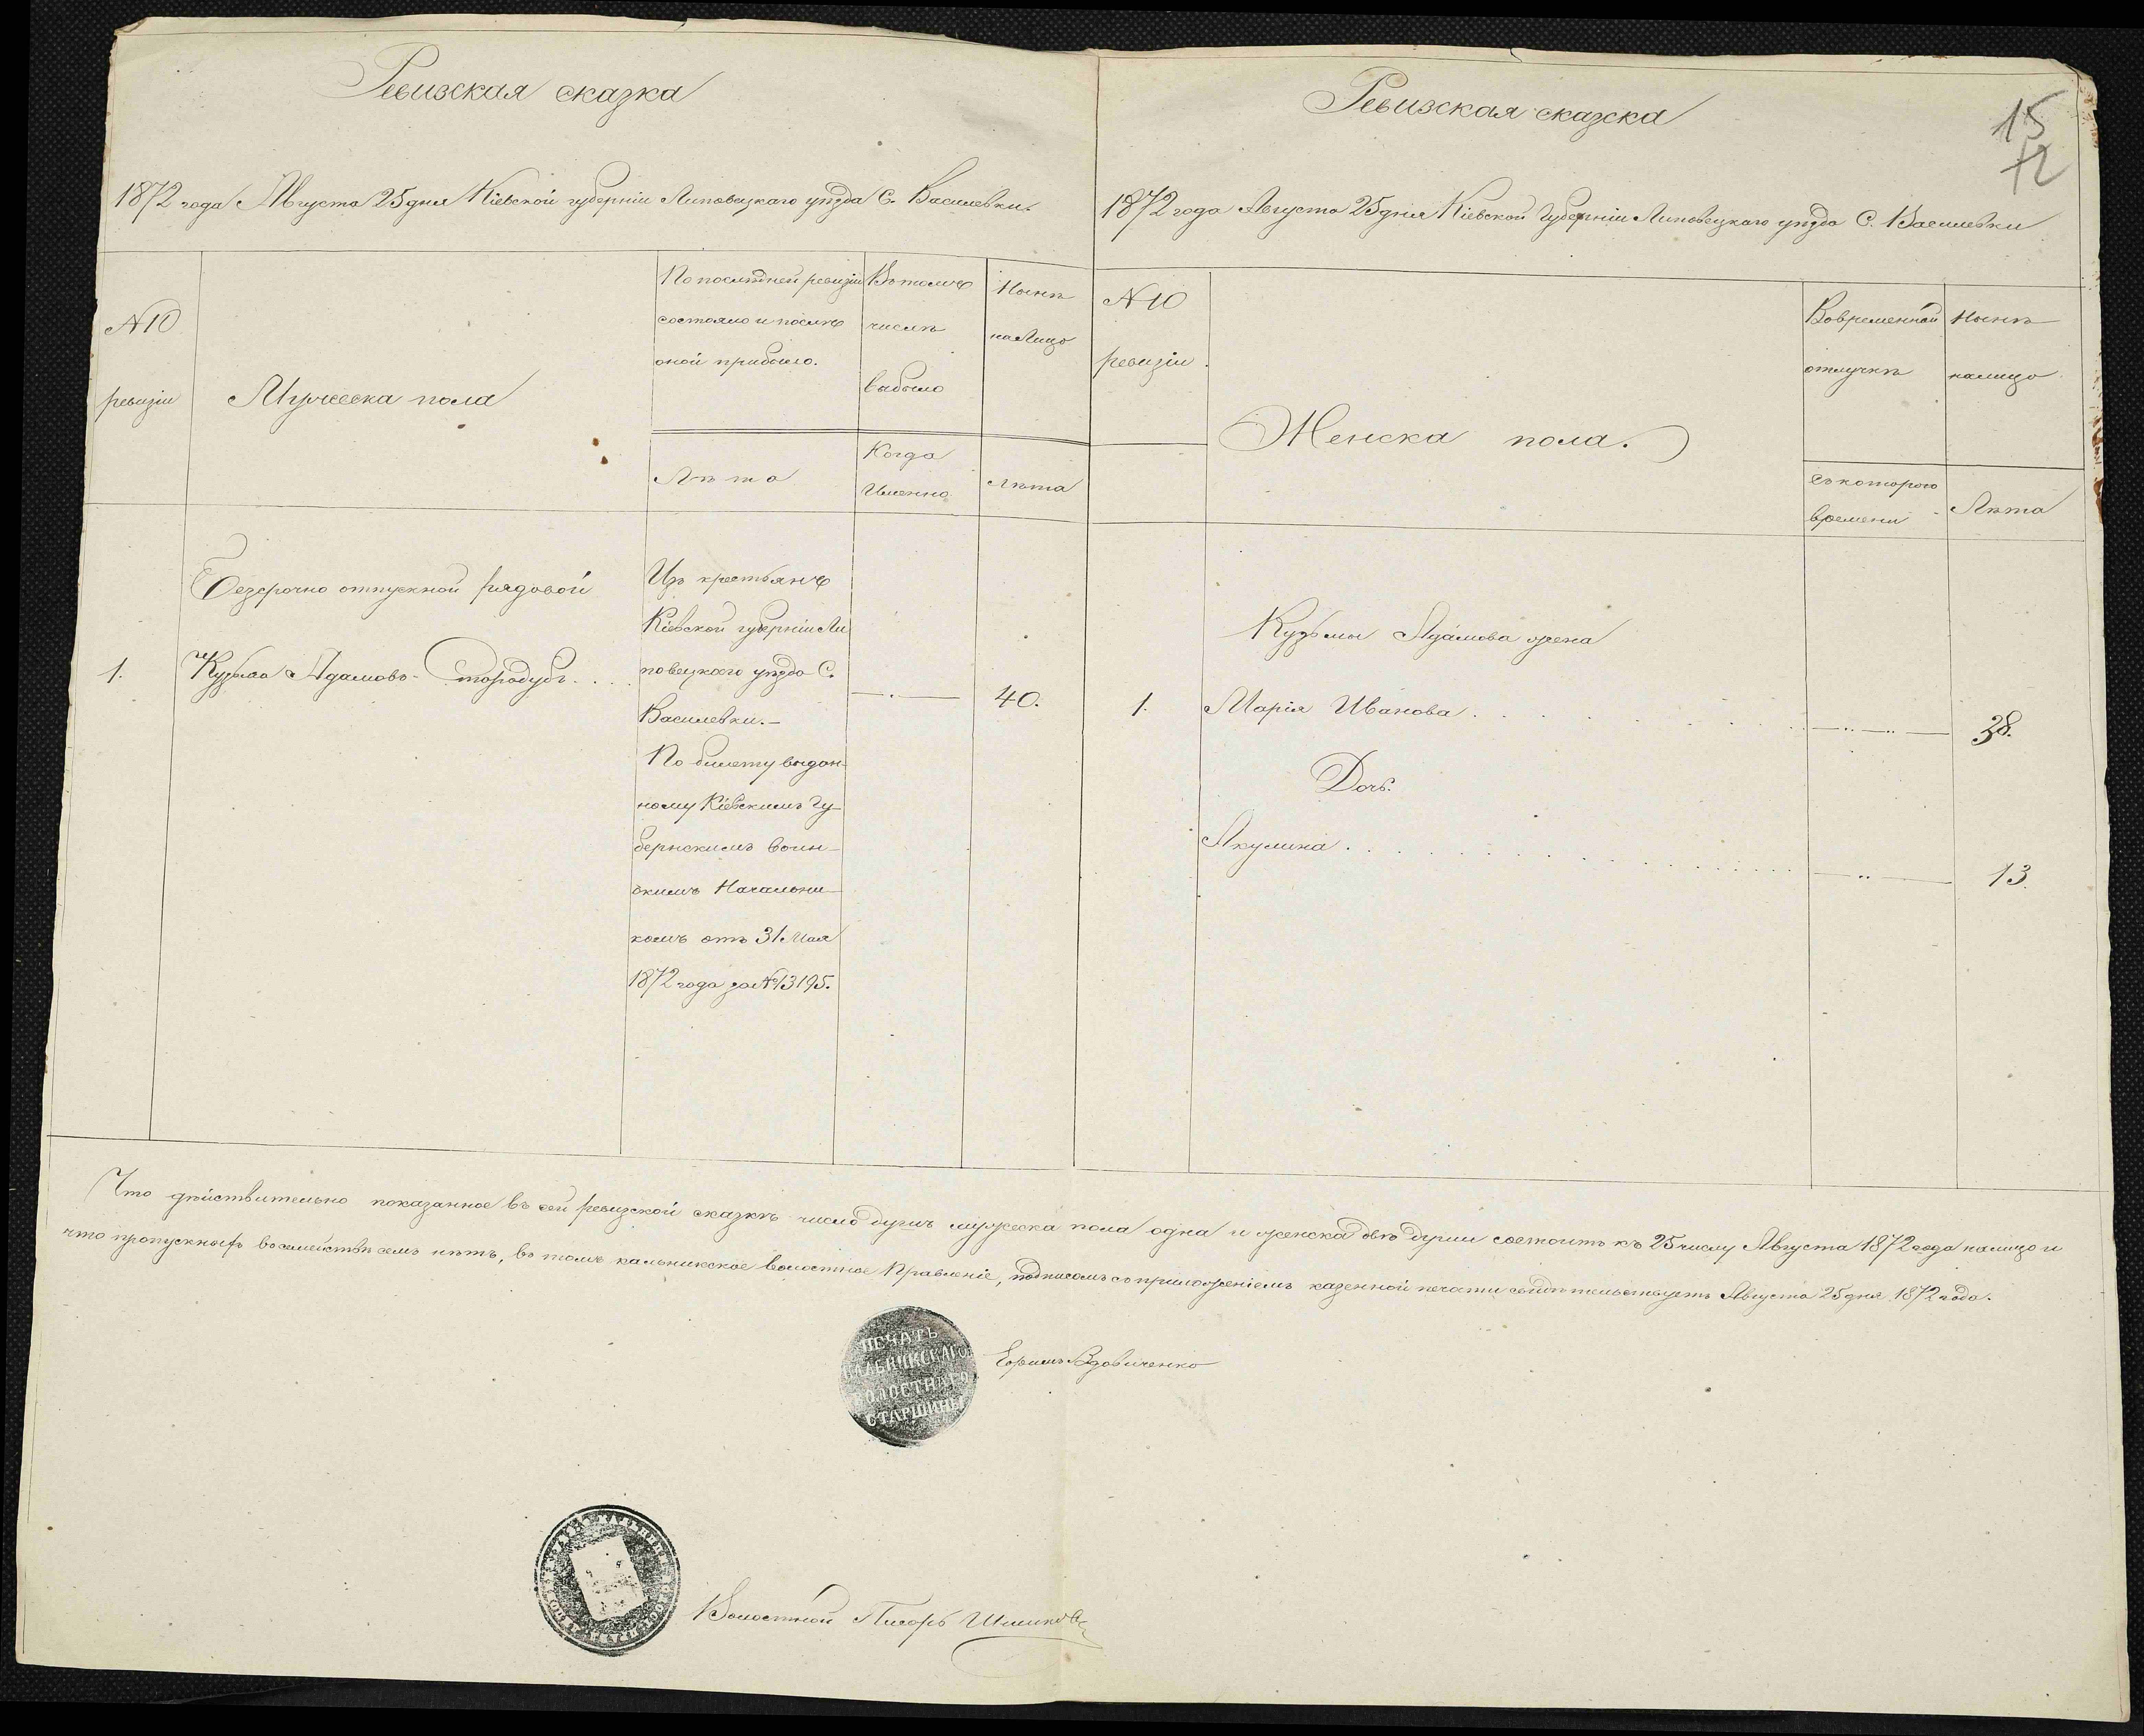 Ревизская сказка
1872 года Августа 25 дня Кіевской губерніи Липовецкаго уѣзда С. Василевки.
N 10
ревизіи
Мужеска пола
По послѣдней ревизіи
состояло и послѣ
оной прибыло.
Лѣта
Въ томъ
числѣ
выбыло
Когда
Именно
Нынѣ
на лицо
Лѣта
Безсрочно отпускной рядовой
1. Кузьма Адамовъ Стародубъ. . .
Изъ крестьянъ
Кіевской губерніи Ли
повецкаго уѣзда С.
Василевки.—
По билету выдан-
ному Кіевскимъ Гу-
бернскимъ воин-
скимъ Начальни-
комъ отъ 31 Мая
1872 года за № 13195.
40.
15
12
Ревизская сказска
1872 года Августа 25 дня Кіевской Губерніи Липовецкаго уѣзда С. Василевки
N 10
ревизіи.
Женска пола.
Вовременной
отлучкѣ
съ котораго
времени
Нынѣ
налицо
Лѣта
Кузьмы Адамова жена
1. Марія Иванова . . . . . 38.
Дочь.
Акулина . . . . . 13.
Что дѣйствительно показанное въ сей ревизской сказкѣ число душъ мужеска пола одна и женска двѣ души состоитъ къ 25 числу Августа 1872 года налицо и
что пропускныхъ въ семействѣ семъ нѣтъ, въ томъ кальникское волостное Правленіе, подписомъ со приложеніемъ казенной печати свидѣтельствуетъ Августа 25 дня 1872 года.
ПЕЧАТЬ
КАЛЬНИКСКАГО
ВОЛОСТНАГО
СТАРШИНЫ
Ефимъ Вдовиченко
Волостной Писарь